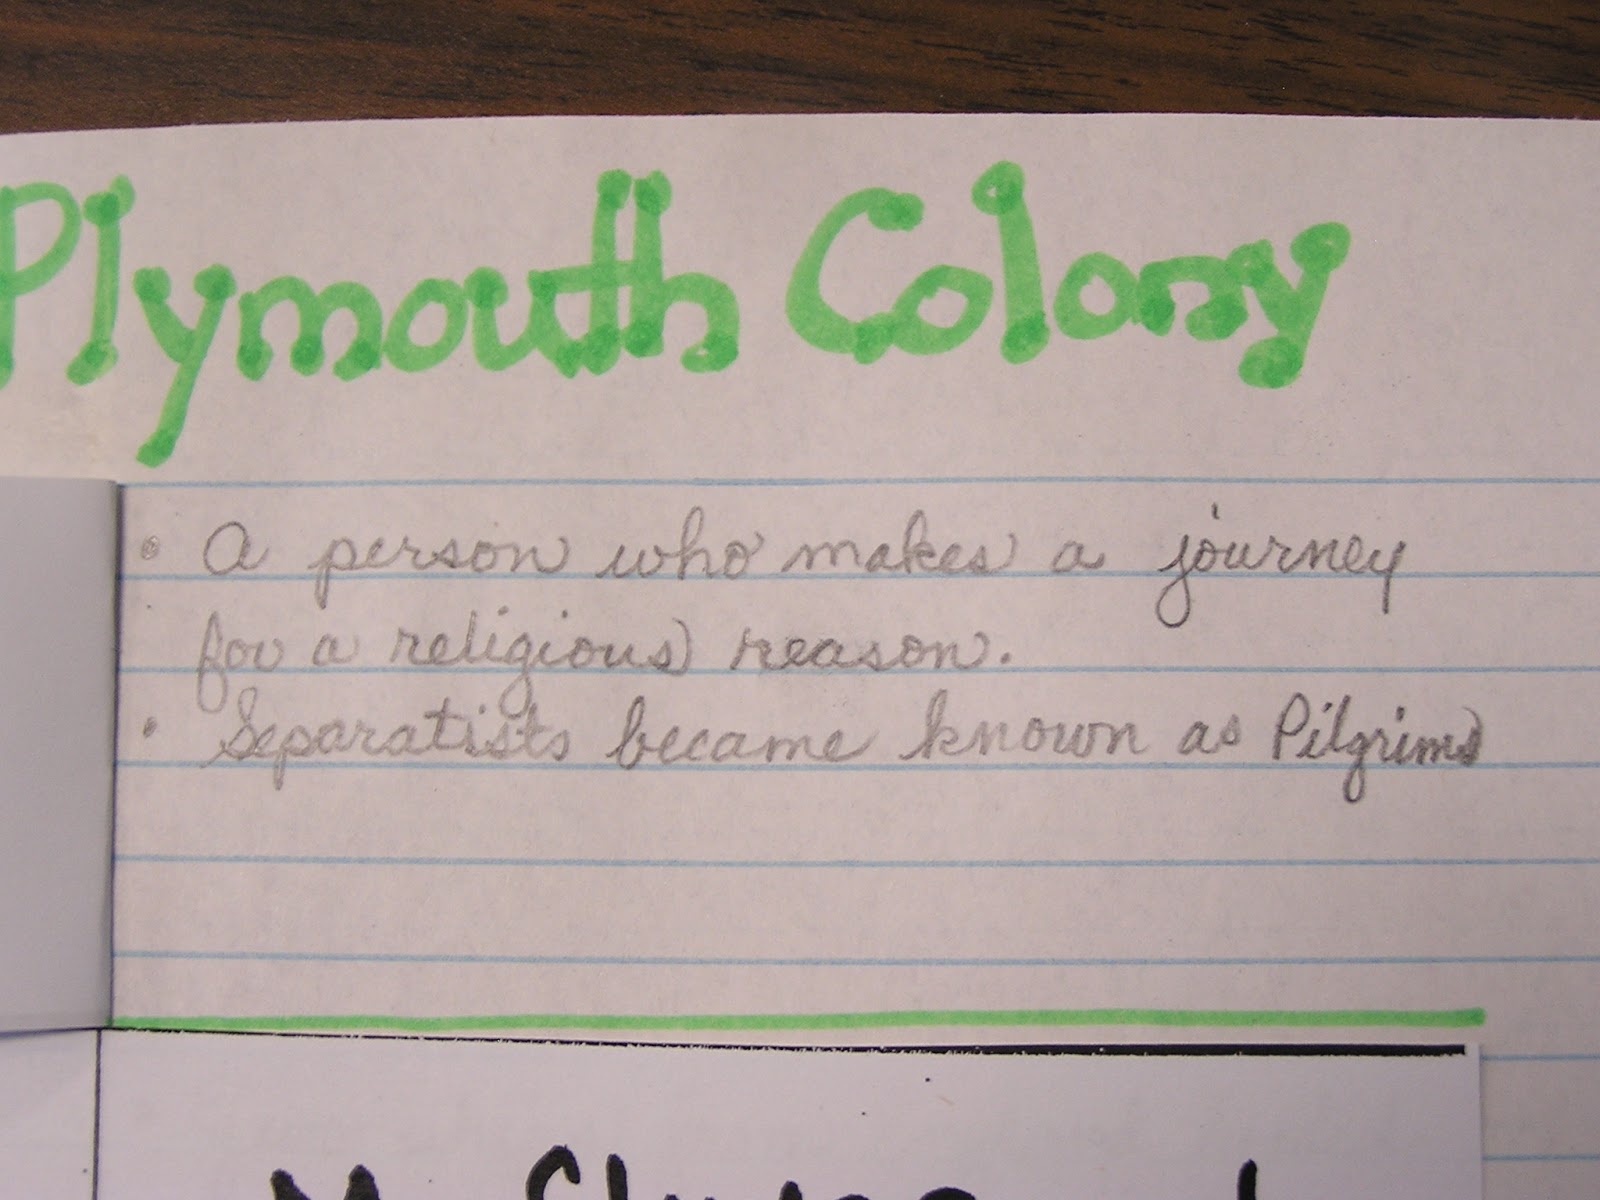 Plymouth Colony
• A person who makes a journey
for a religious reason.
• Separatists became known as Pilgrims